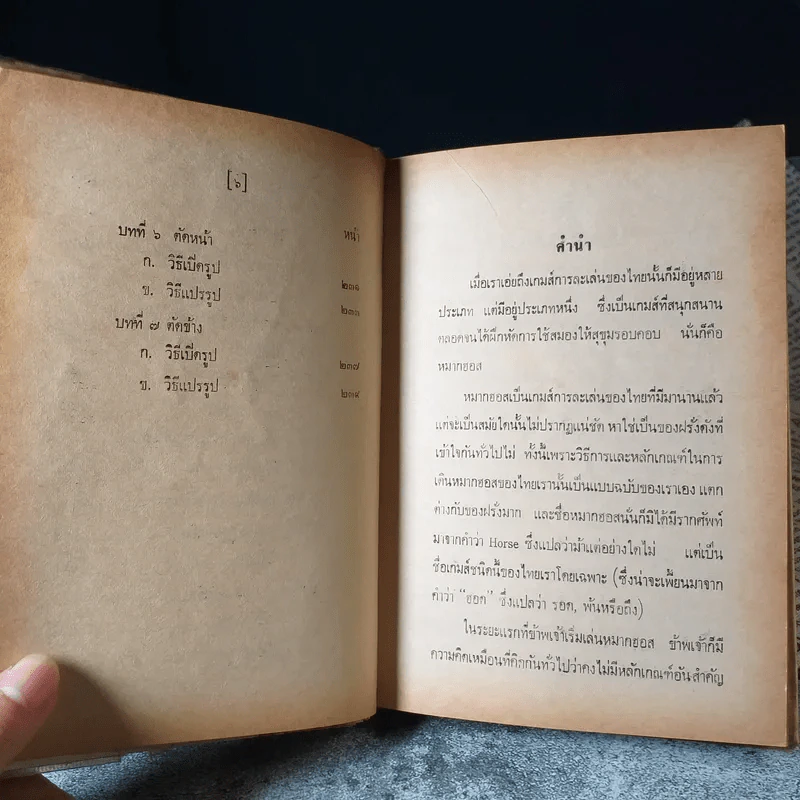 [๖]
บทที่ ๖ ตัดหน้า หน้า
ก. วิธีเปิดรูป ๒๓๑
ข. วิธีแปรรูป ๒๓๓
บทที่ ๗ ตัดข้าง
ก. วิธีเปิดรูป ๒๓๗
ข. วิธีแปรรูป ๒๓๙
คำนำ
เมื่อเราเอ่ยถึงเกมส์การละเล่นของไทยนั้นก็มีอยู่หลาย
ประเภท แต่มีอยู่ประเภทหนึ่ง ซึ่งเป็นเกมส์ที่สนุกสนาน
ตลอดจนได้ฝึกหัดการใช้สมองให้สุขุมรอบคอบ นั่นก็คือ
หมากฮอส
หมากฮอสเป็นเกมส์การละเล่นของไทยที่มีมานานแล้ว
แต่จะเป็นสมัยใดนั้นไม่ปรากฏแน่ชัด หาใช่เป็นของฝรั่งดังที่
เข้าใจกันทั่วไปไม่ ทั้งนี้เพราะวิธีการและหลักเกณฑ์ในการ
เดินหมากฮอสของไทยเรานั้นเป็นแบบฉบับของเราเอง แตก
ต่างกับของฝรั่งมาก และชื่อหมากฮอสนั่นก็มิได้มีรากศัพท์
มาจากคำว่า Horse ซึ่งแปลว่าม้าแต่อย่างใดไม่ แต่เป็น
ชื่อเกมส์ชนิดนี้ของไทยเราโดยเฉพาะ (ซึ่งน่าจะเพี้ยนมาจาก
คำว่า “ฮอด” ซึ่งแปลว่า รอด, พ้นหรือถึง)
ในระยะแรกที่ข้าพเจ้าเริ่มเล่นหมากฮอส ข้าพเจ้าก็มี
ความคิดเหมือนที่คิดกันทั่วไปว่าคงไม่มีหลักเกณฑ์อันสำคัญ